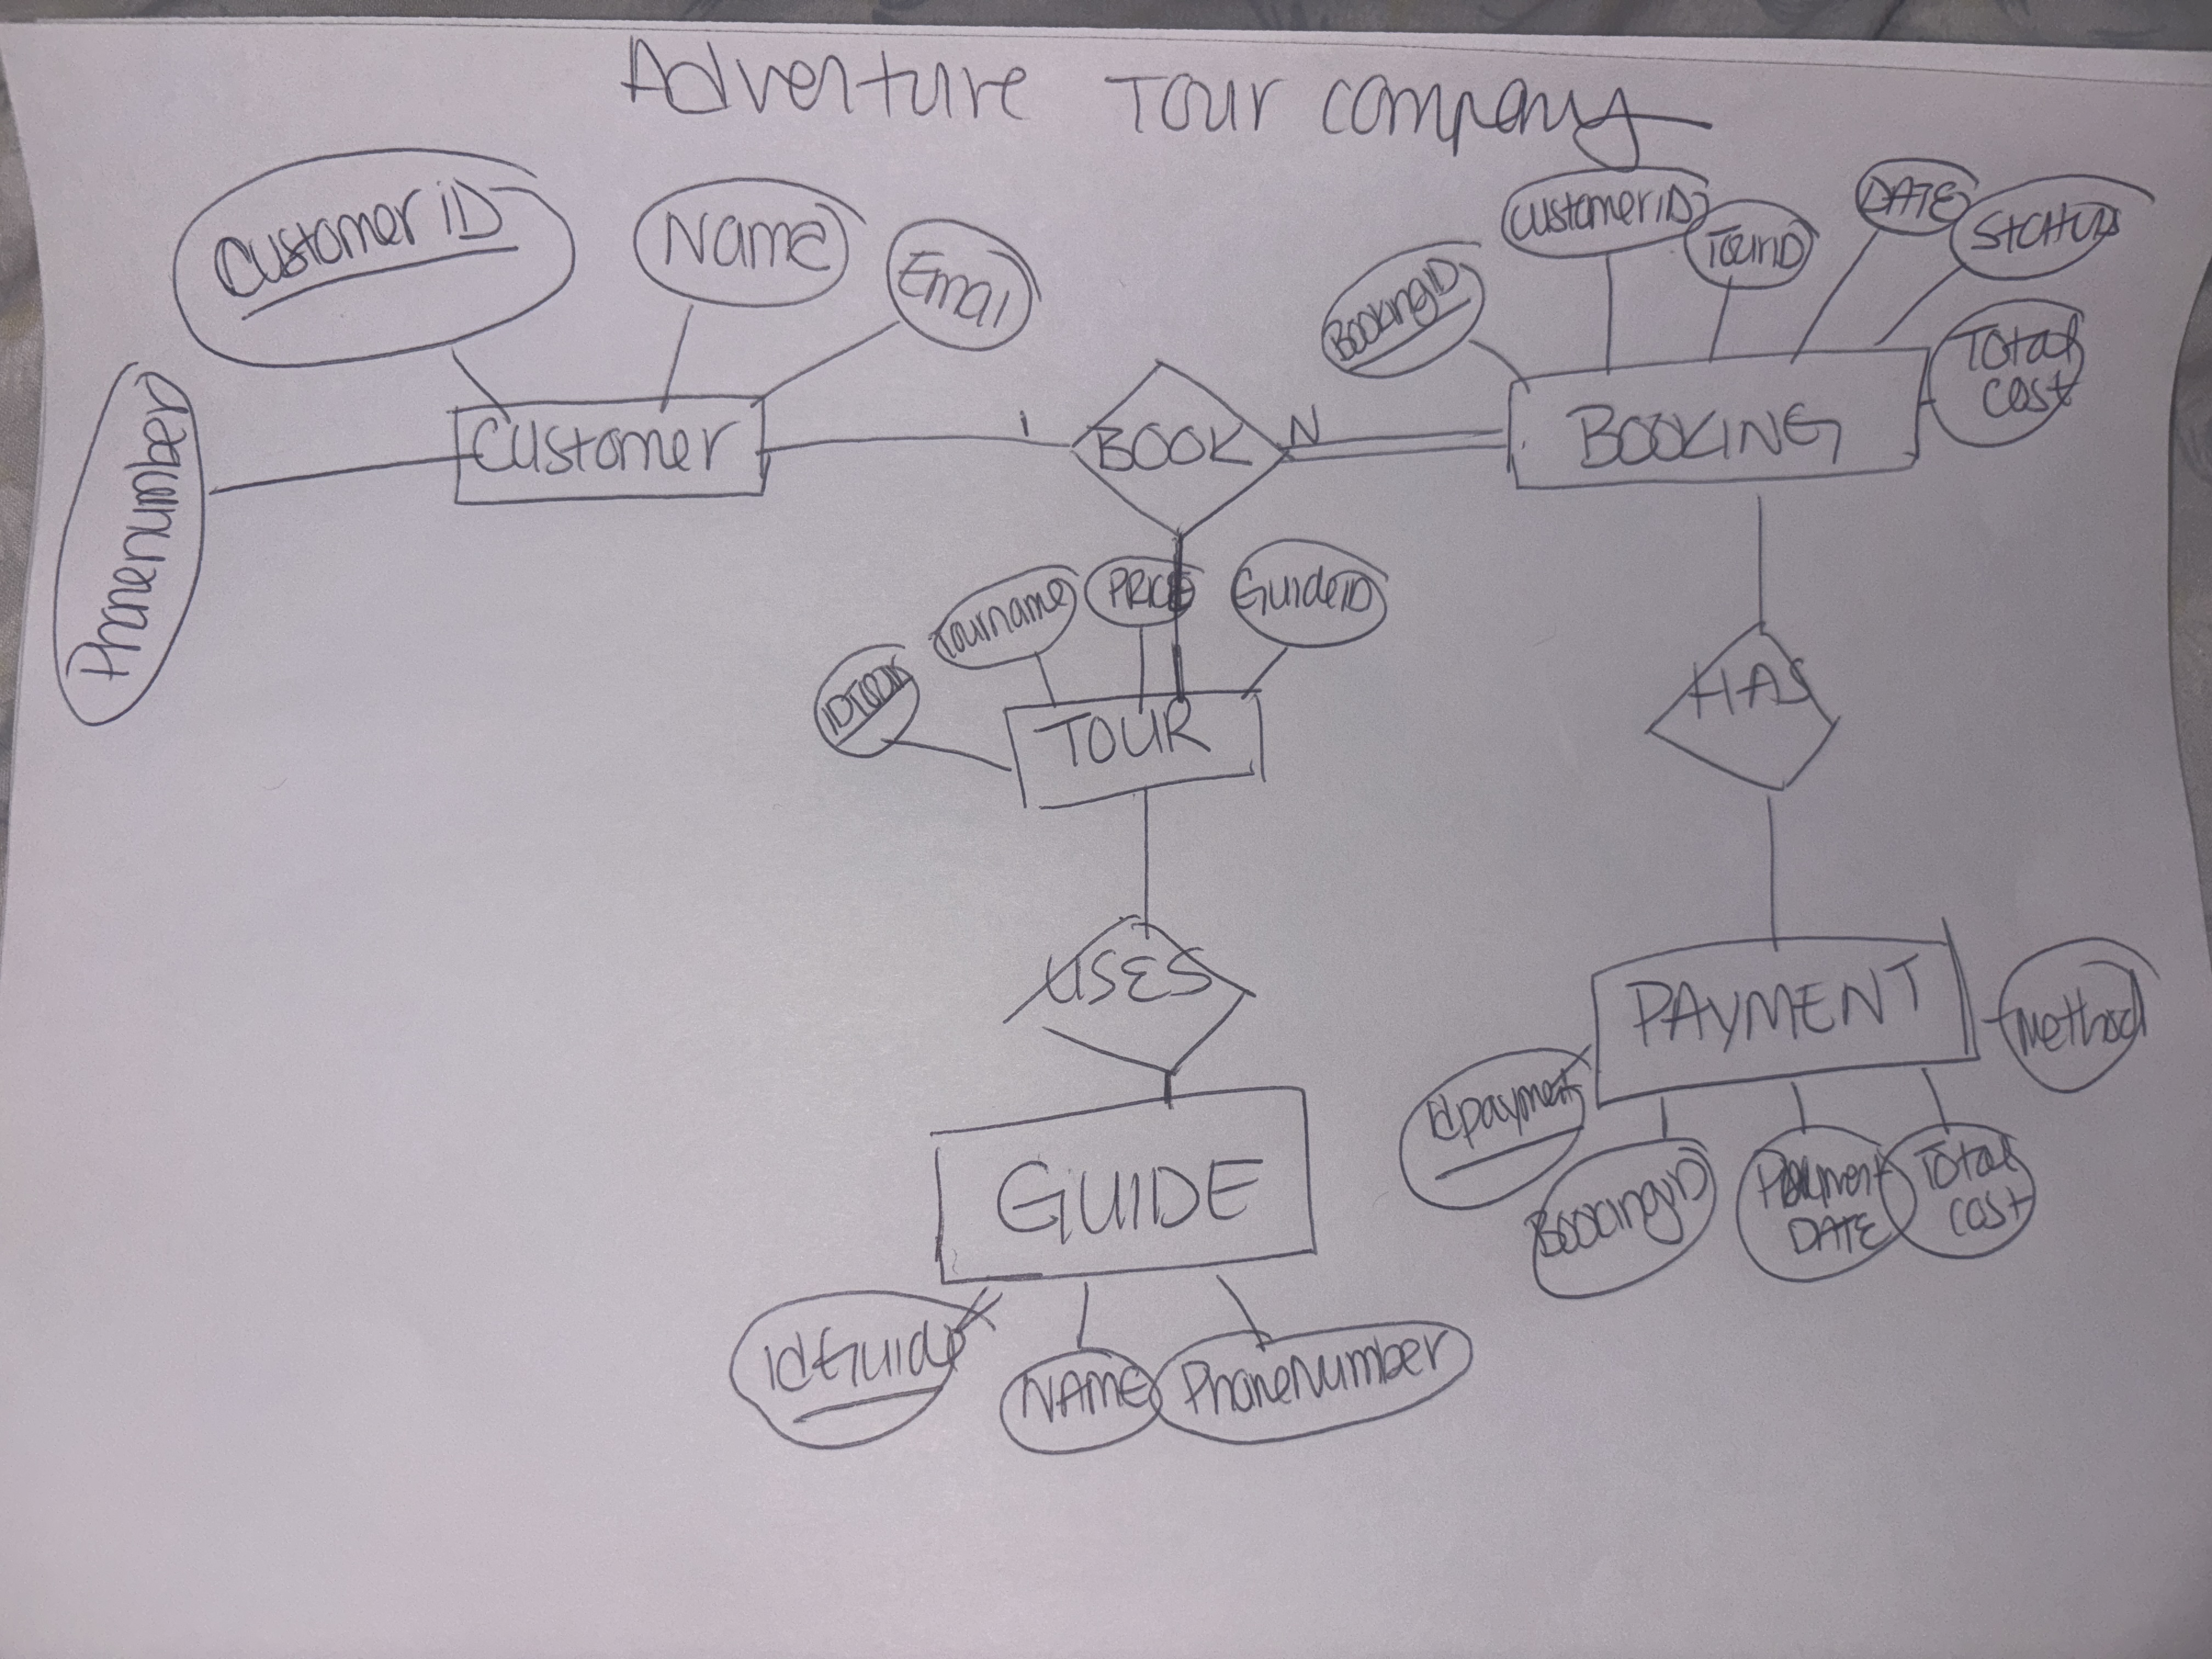 Adventure Tour company
Customer iD
Name
Emai
Phonenumber
Customer
1
BOOK
N
BookingID
customerID
TourID
DATE
Status
Total
cost
BOOKING
IDTour
Tourname
PRICE
GuideID
TOUR
HAS
USES
PAYMENT
Method
idpayment
BookingID
Payment
DATE
Total
cost
GUIDE
idGuide
NAME
PhoneNumber